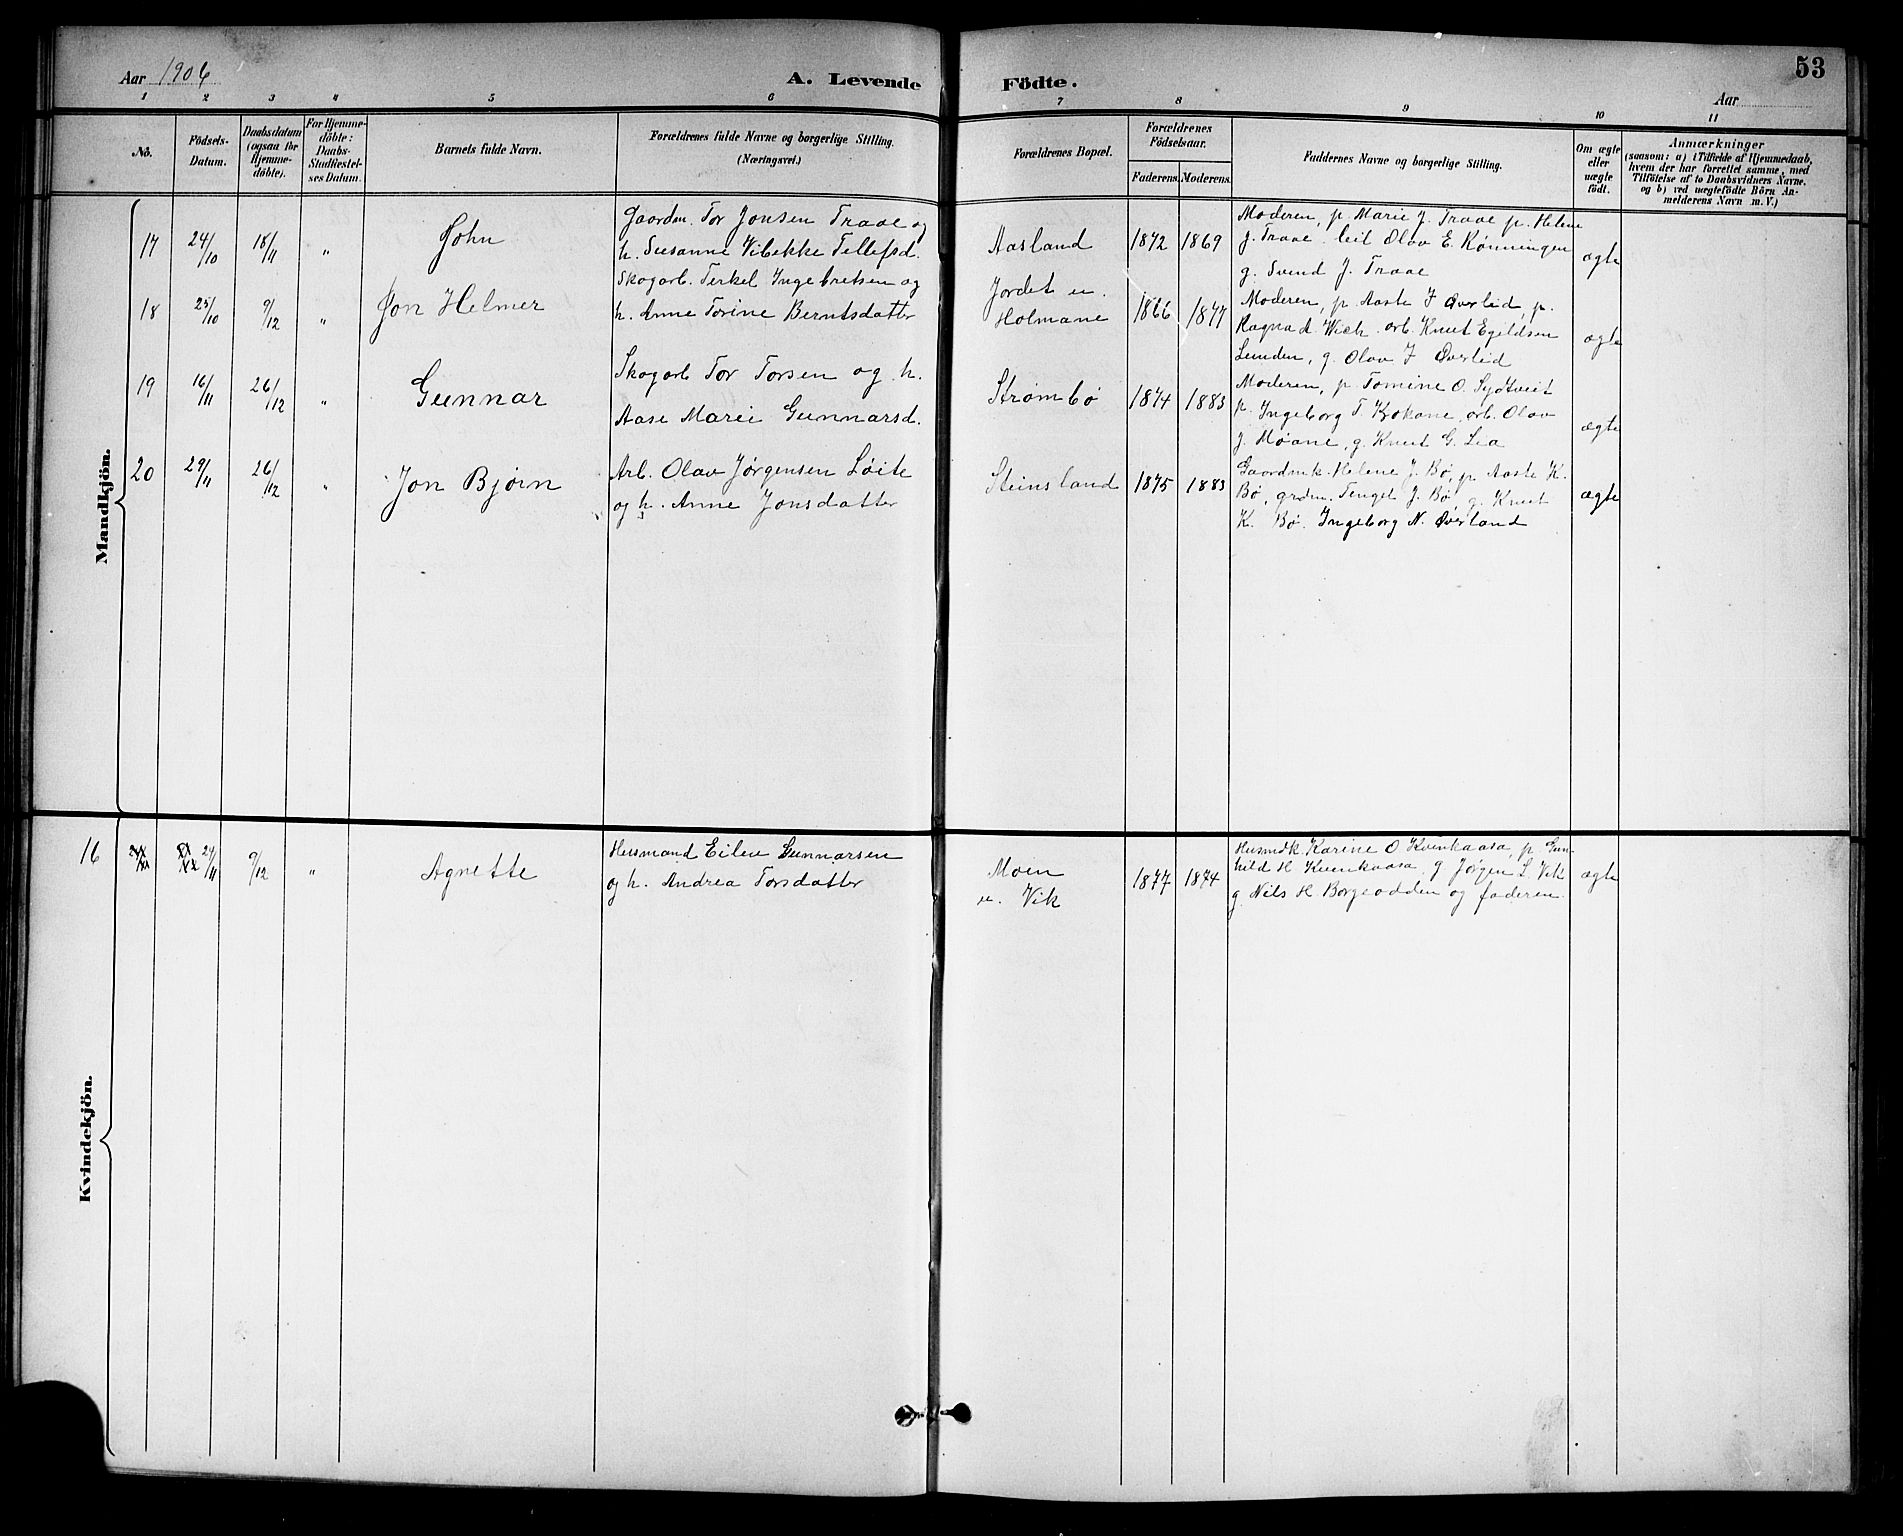 Aar 1906
A. Levende Födte.
53
Aar
1 2 3 4 5 6 7 8 9 10 11
No.
Födsels-
Datum.
Daabsdatum
(ogsaa for
Hjemme-
döbte).
For Hjemme-
döbte:
Daabs-
Stadfæstel-
ses Datum.
Barnets fulde Navn.
Forældrenes fulde Navne og borgerlige Stilling.
(Næringsvei.)
Forældrenes Bopæl.
Forældrenes
Födselsaar.
Faderens. Moderens.
Faddernes Navne og borgerlige Stilling.
Om ægte
eller
uægte
födt.
Anmærkninger
(saasom: a) i Tilfælde af Hjemmedaab,
hvem der har forrettet samme, med
Tilföielse af to Daabsvidners Navne.
og b) ved uægtefödte Börn An-
melderens Navn m. V.)
Mandkjön.
17 24/10 18/11 " John
Gaardm. Tor Jonsen Traae og
h. Susanne Vibekke Tellefsd.
Aasland 1872 1869
Moderen, p. Marie J. Traae p. Helene
J. Traae. leil Olav E. Rønningen
g. Svend J. Traae
ægte
18 25/10 9/12 " Jon Helmer
Skogarb. Terkel Ingebretsen og
h. Anne Torine Berntsdatter
Jordet u.
Holmane 1866 1877
Moderen, p. Aaste J Øverlid, p.
Ragna d Wich. arb. Knut Egildsen
Lunden, g. Olav J Øverlid
ægte
19 16/11 26/12 " Gunnar
Skogarb Tor Torsen og h.
Aase Marie Gunnarsd.
Strømbø 1874 1883
Moderen, p. Tomine O. Sydtveit
p. Ingeborg T. Krokane, arb. Olav
J. Møane, g. Knut G. Lia
ægte
20 29/11 26/12 " Jon Bjørn
Arb. Olav Jørgensen Løite
og h. Anne Jonsdatter
Steinsland 1875 1883
Gaardmk. Helene J. Bø, p. Aaste K.
Bø, grdm. Tengel J. Bø g. Knut
K. Bø. Ingeborg N. Øverland
ægte
Kvindekjön.
16 24/11 9/12 " Agnette
Husmand Eilev Gunnarsen
og h. Andrea Torsdatter
Moen
u. Vik 1877 1874
Husmdk Karine O Kvenkaasa, p. Gun-
hild H Kvenkaasa, g Jørgen L. Vik
g. Nils H. Borgeodden og faderen.
ægte